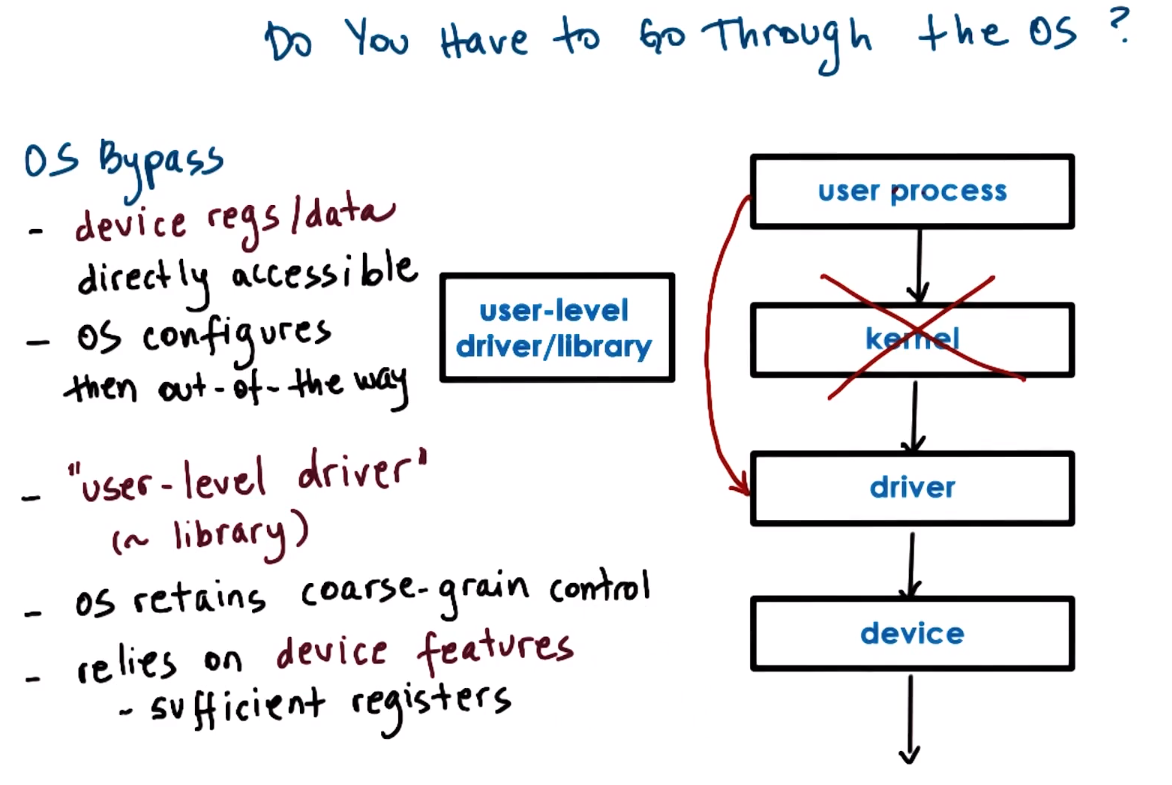 Do You Have to Go Through the OS?
OS Bypass
- device regs/data
directly accessible
- OS configures
then out-of-the way
- "user-level driver"
(~ library)
- OS retains coarse-grain control
- relies on device features
- sufficient registers
user-level
driver/library
user process
kernel
driver
device